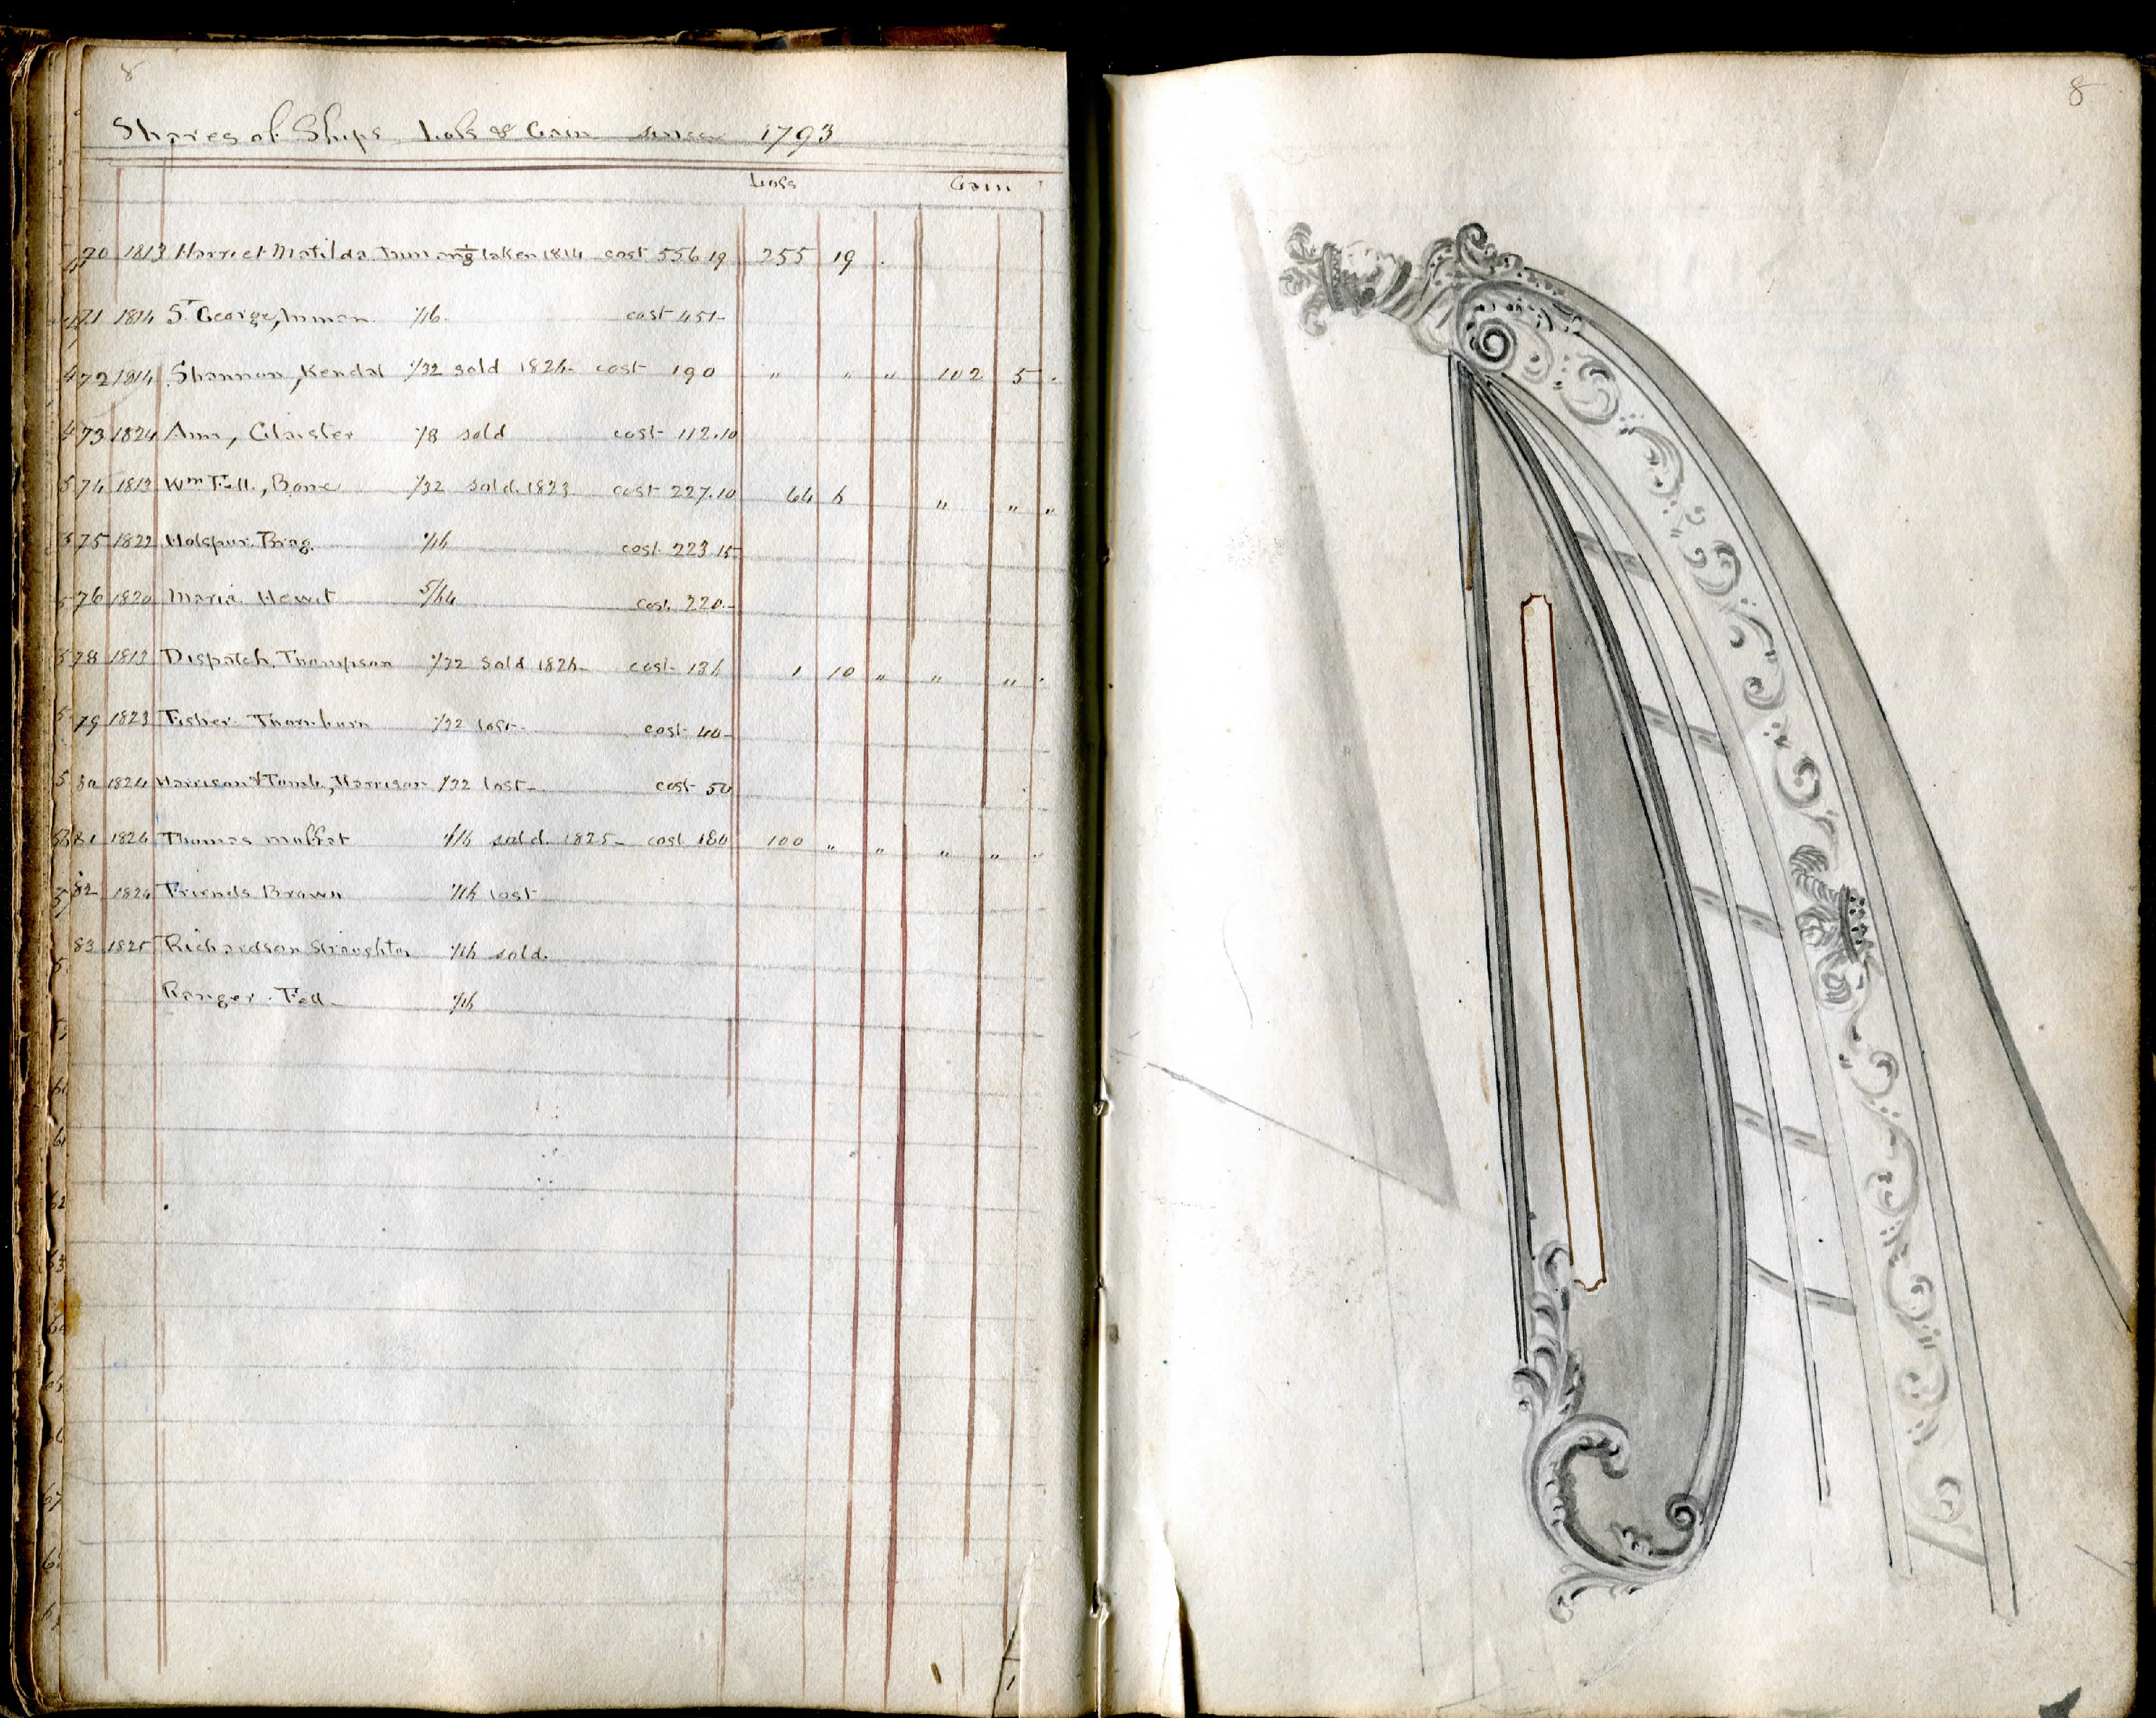 8
Shares of Ships Loss & Gain since 1793
Loss Gain
70 1813 Harriet Matilda, Inman 1/8 taken 1814 cost 556 19 255 19 .
71 1814 St George, Inman 1/16 cost 451-
72 1814 Shannon, Kendal 1/32 sold 1824- cost 190 " " " 102 5 .
73 1824 Ann, Glaister 1/8 sold cost 112.10
74 1813 Wm Fell, Bone 1/32 sold 1823 cost 227.10 64 6 " " "
75 1822 Hotspur, Brag. 1/16 cost 223 15
76 1820 Maria Hewit 5/64 cost 220.-
78 1813 Dispatch, Thompson 1/32 sold 1826- cost 136 1 10 " " " .
79 1823 Fisher Thornburn 1/32 lost- cost 40-
80 1824 Harrison & Tomb, Harrison 1/32 lost- cost 50
81 1824 Thomas Moffat 1/16 sold 1825- cost 180 100 " " " " "
82 1824 Friends Brown 1/16 lost
83 1825 Richardson Straughton 1/16 sold.
Ranger. Fell- 1/16
8